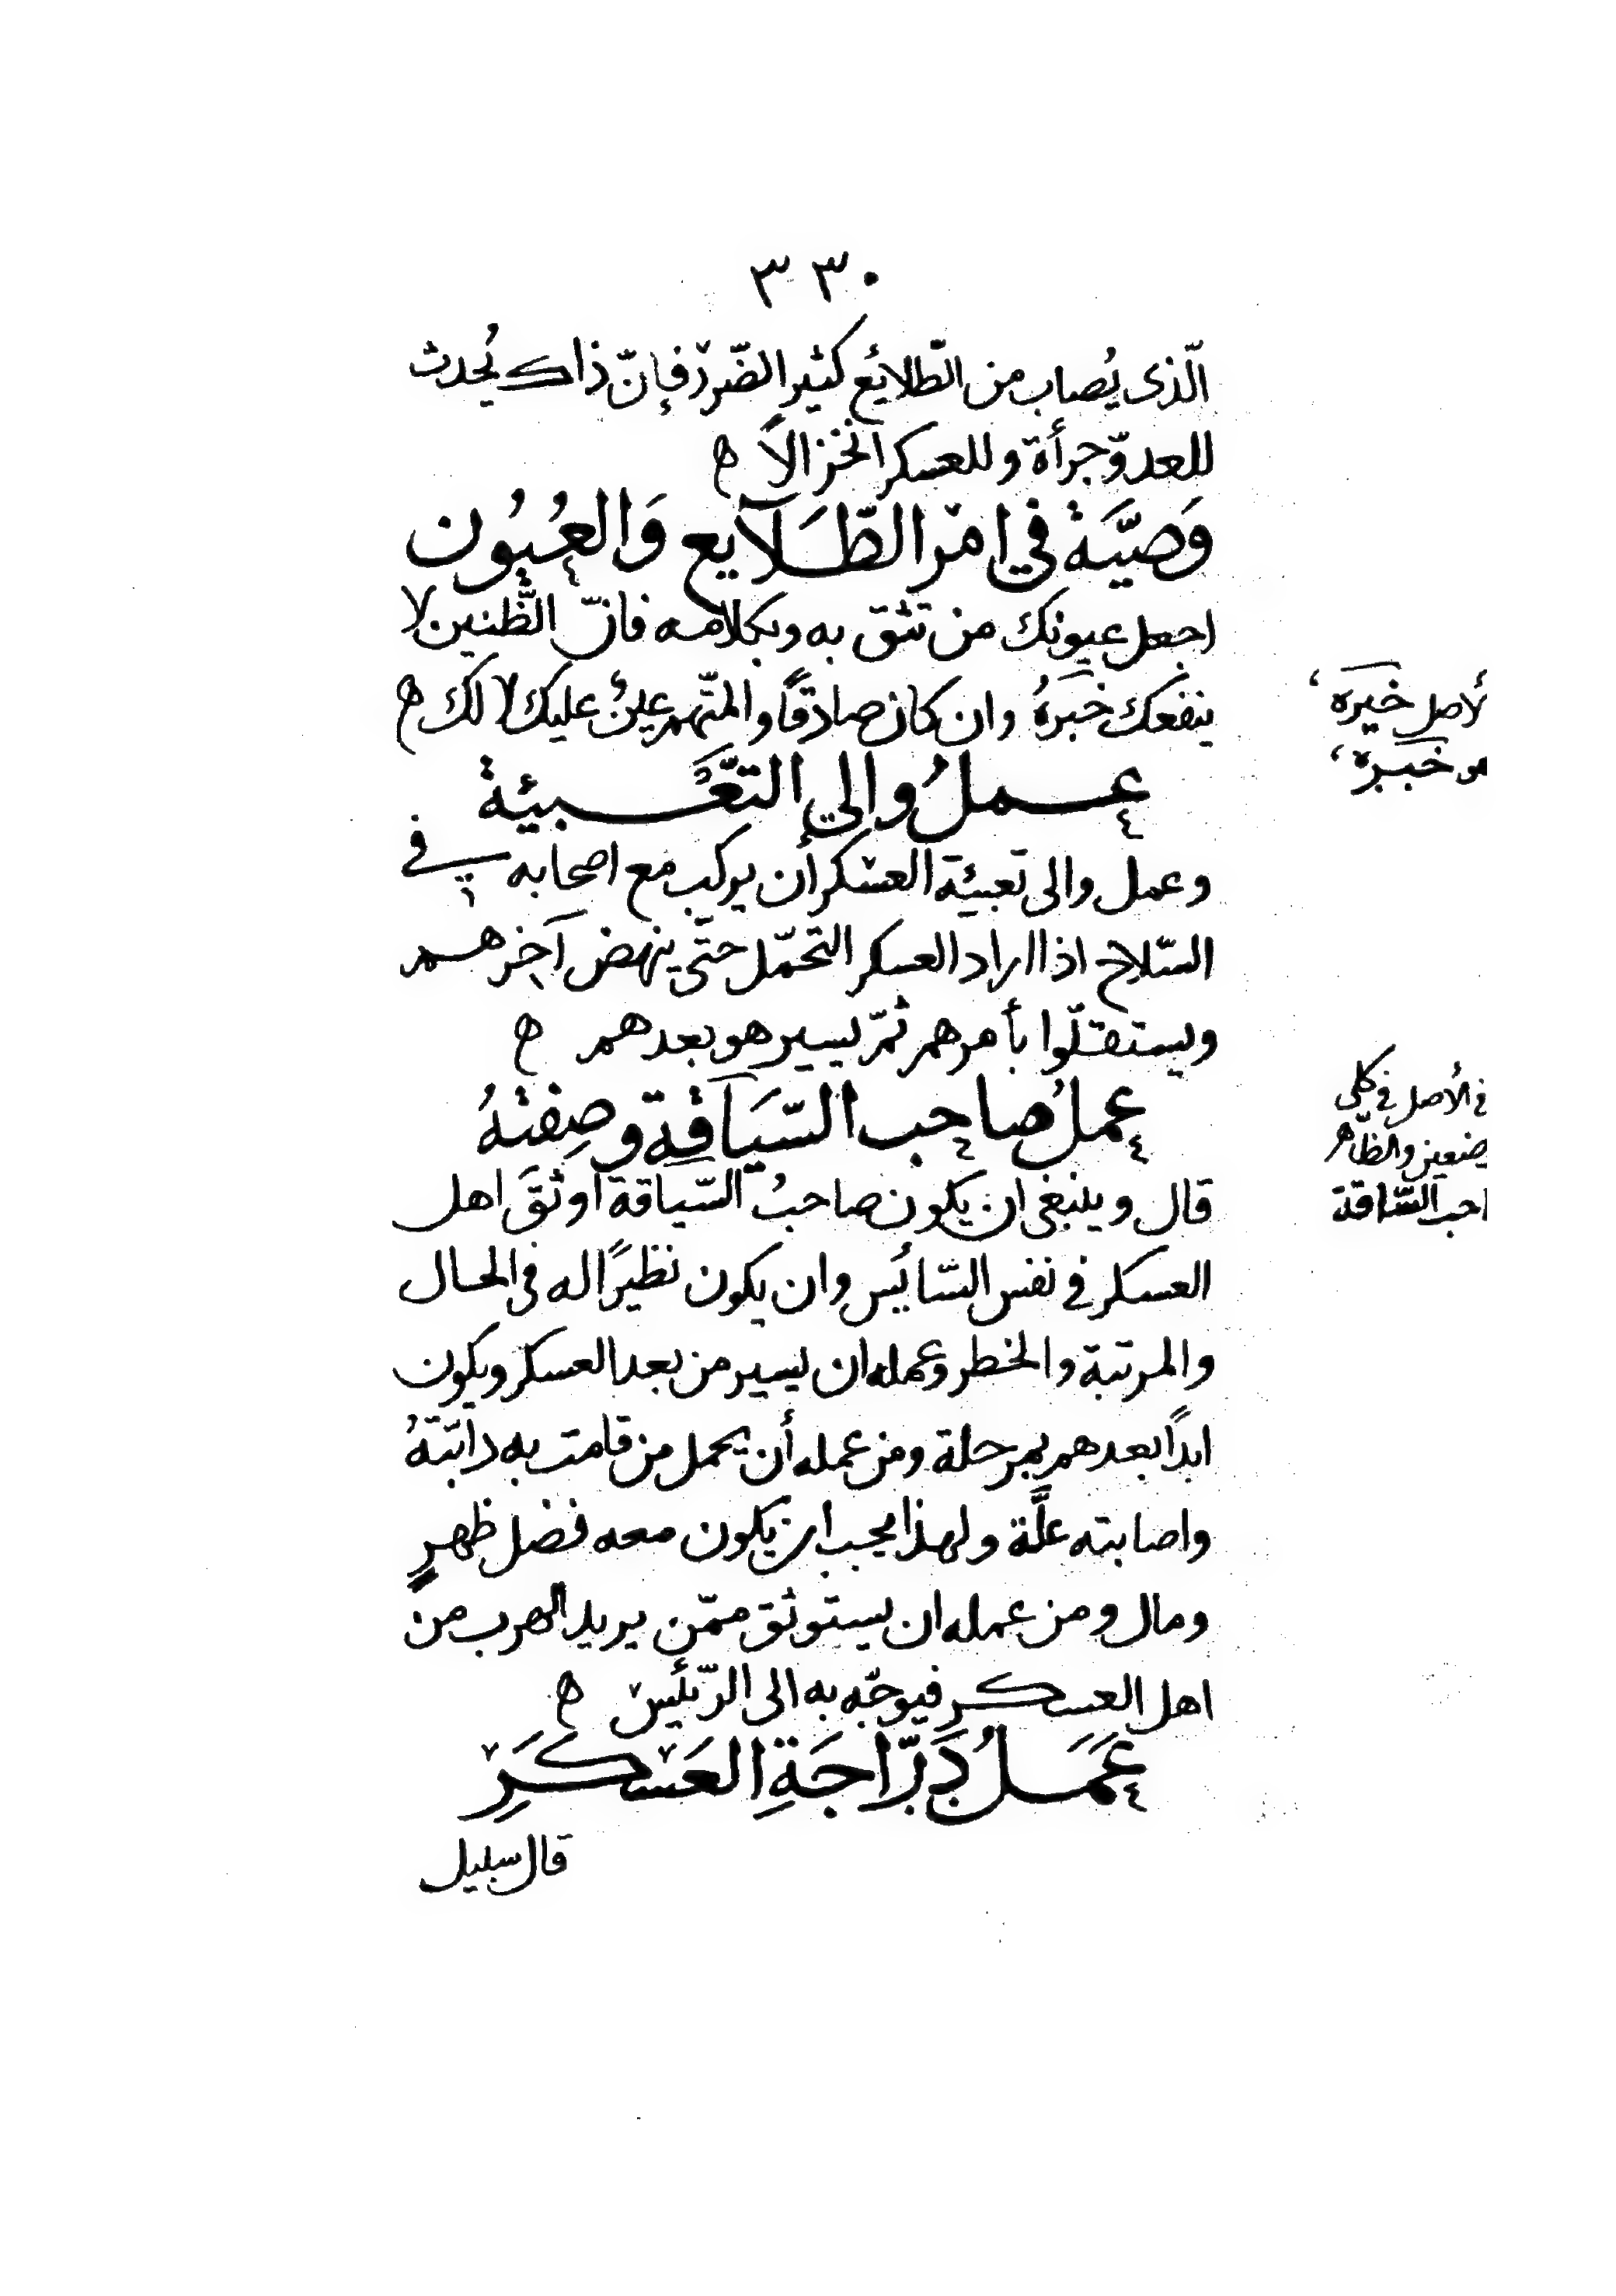 ٣٣٠
الّذى يُصاب من الطّلايُع كثير الضّررْ فإنّ ذاك يُحدث
للعدوّ جرأة وللعسكر انخزالاً ه
وَصيَّة في امْر الطّلَآيع وَالعُيُون
اجعل عيونك من تثق به وبكلامه فانّ الظّنين لا
ينفعك خبَرهُ وان كان صادقًا والمتّهم عينٌ عليك لا لك ه
الأصل خيره،
هو خبره،
عملُ والي التّعْبيئة
وعمل والى تعبيئة العسْكر أن يركب مع اصحابه في
السّلاح اذا اراد العسكر التحمّل حتّى ينهض آخرهم
ويستقلّوا بأمرهم ثمّ يسير هو بعدهم ه
عملُ صاحب السّيَاقة وصِفتهُ
في الأصل في كلى
الظّاهر
السّاقة
قال وينبغى ان يكون صاحبُ السّياقة اوثقَ اهل
العسكر في نفس السّايُس وان يكون نظيرًا له في الحال
والمرتبة والخطر وعمله ان يسير من بعد العسكر ويكون
ابدًا بعدهم بمرحلة ومن عمله أن يحمل من قامت به دابّتهُ
واصابته علّة ولهذا يجب ان يكون معه فضل ظهرٍ
ومال ومن عمله ان يستوثق ممّن يريد الهرب من
اهل العسكر فيوجّه به الى الرّئيسْ ه
عَمَلُ دَرّاجَةِ العَسْكَرِ
قال سبيل